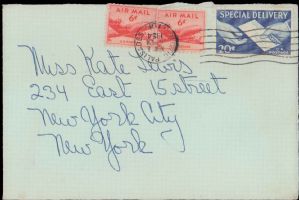 AIR MAIL
6¢
AIR MAIL
6¢
SPECIAL DELIVERY
20¢
Miss Kate Lewis
234 East 15 street
New York City
New York